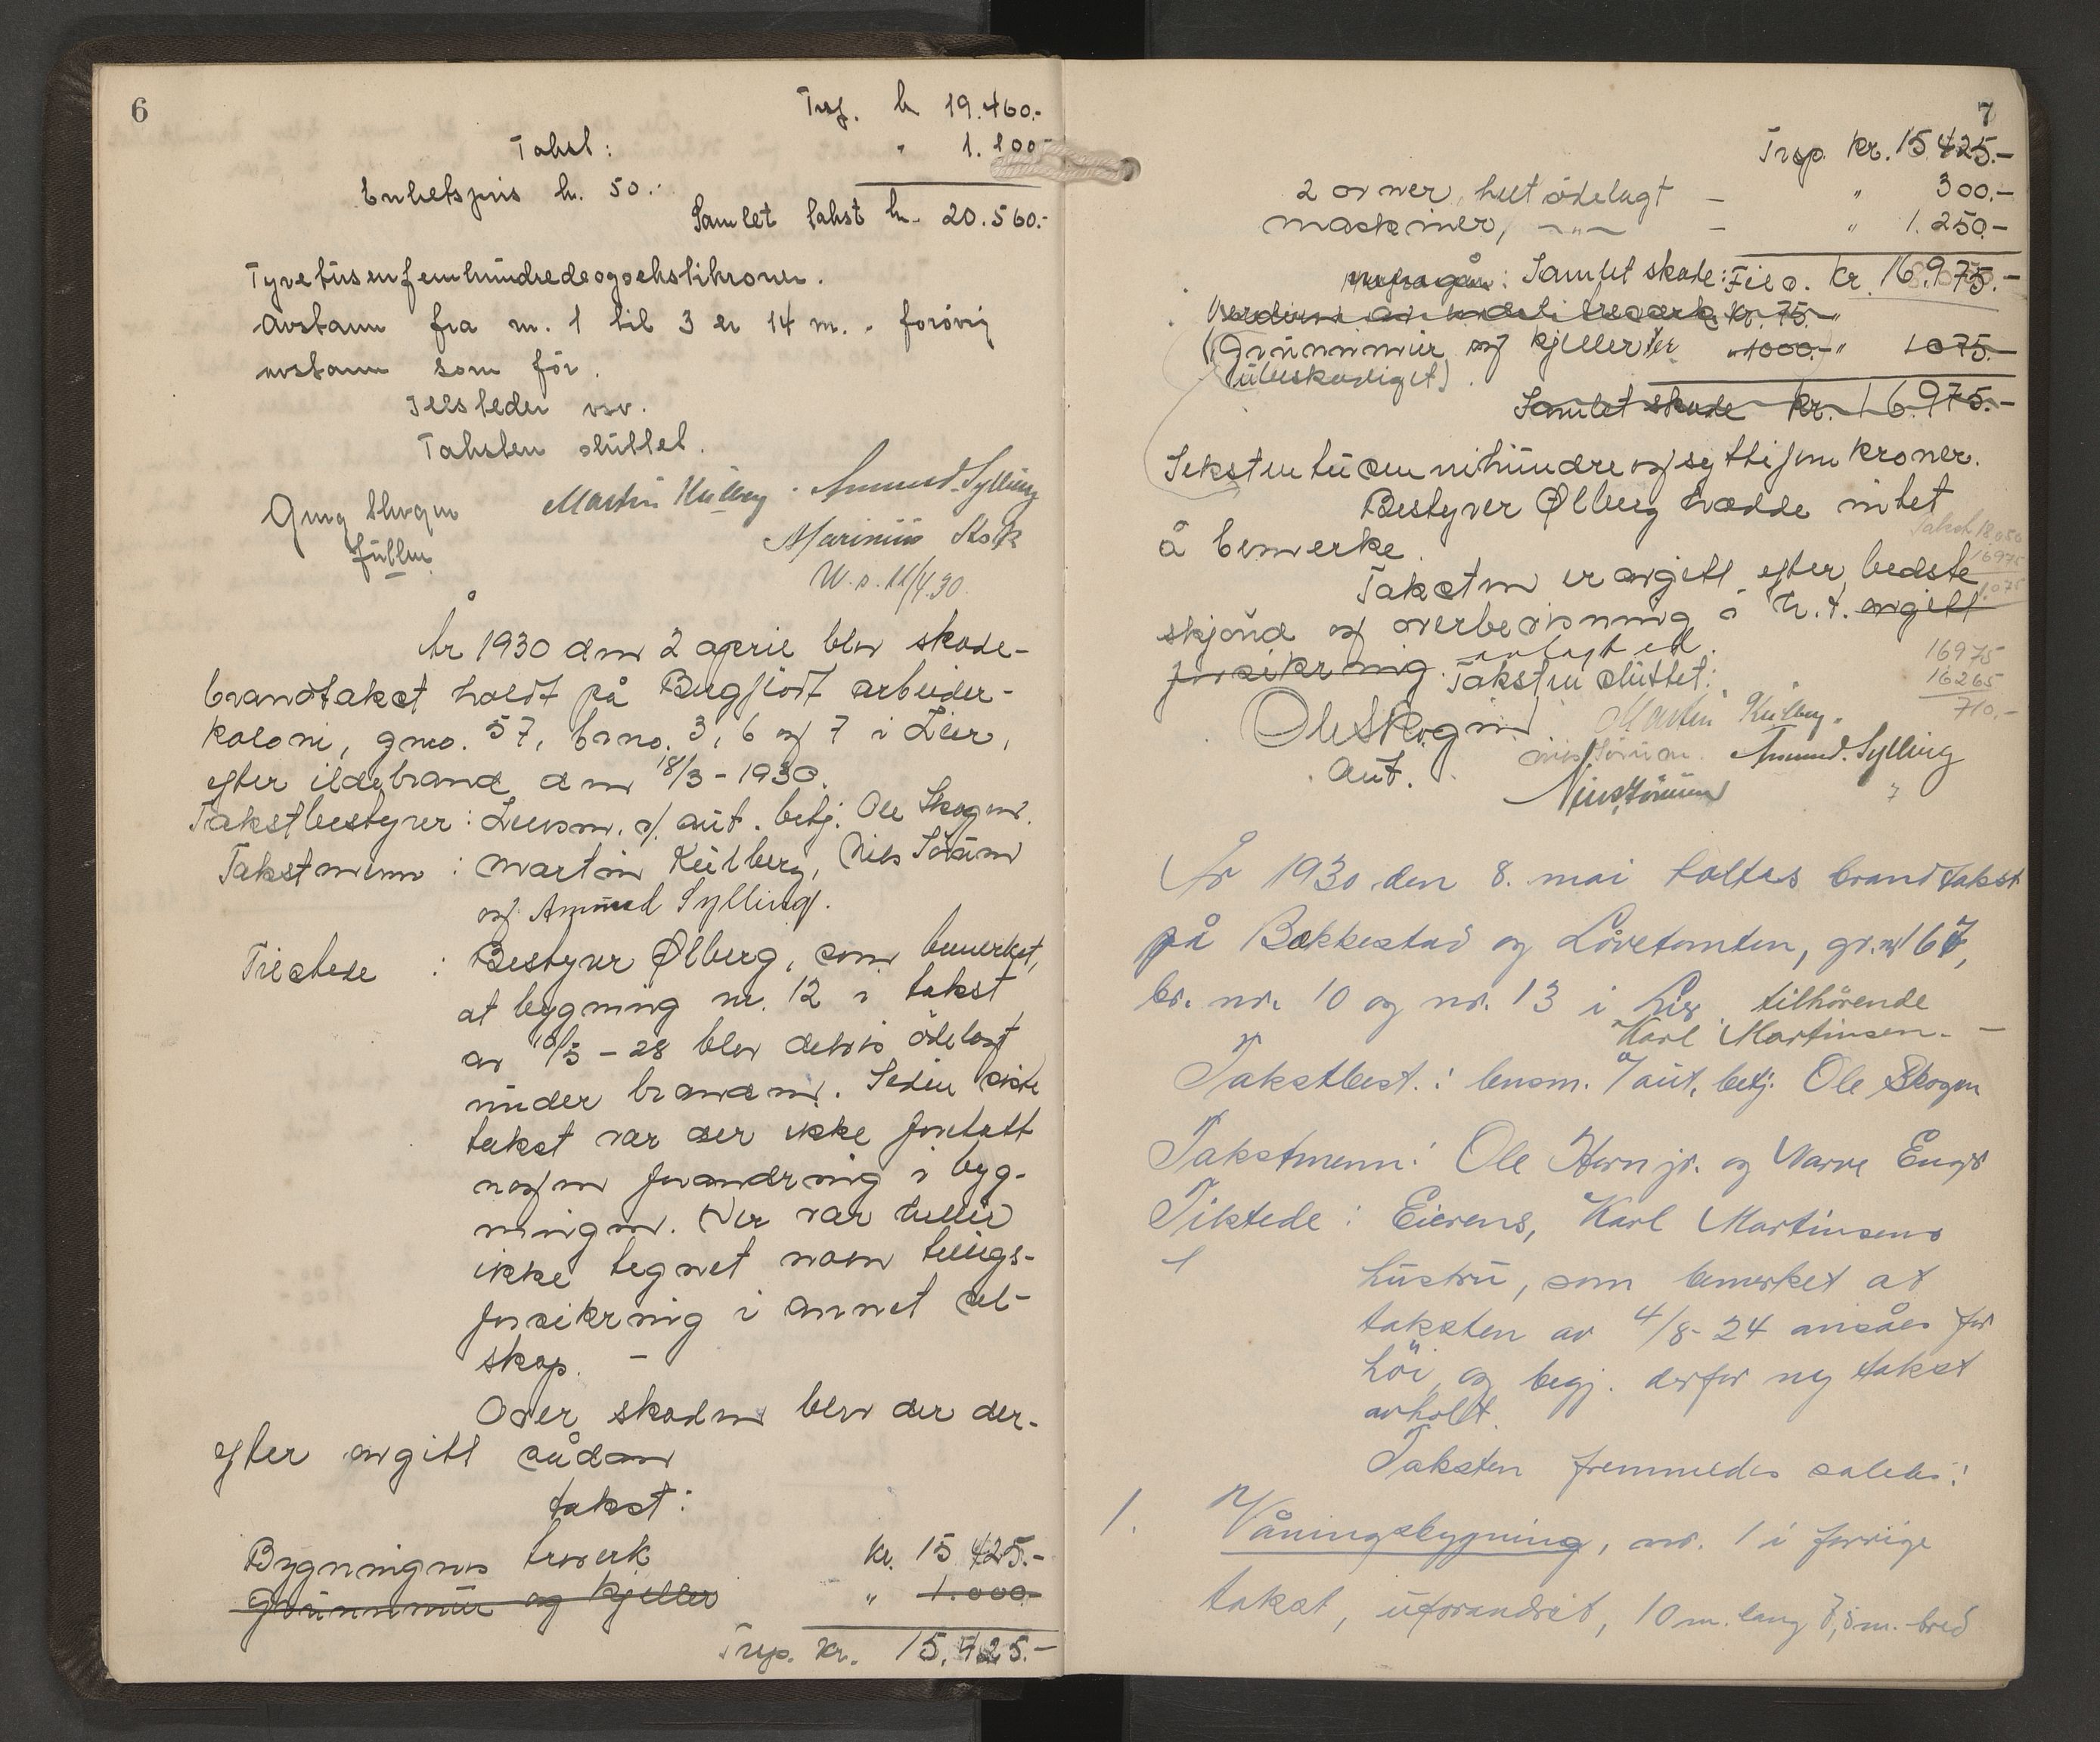 6
Trsp. kr 19.460.-
Takst: " 1.100.-
Enhetspris kr. 50.-
Samlet takst kr. 20.560.-
Tyvetusenfemhundredeogsekstikroner.
Avstann fra nr. 1 til 3 er 14 m. forøvrig
avstann som før.
Ildsteder
Taksten sluttet.
Martin Kulberg. Amund Sylling
Marinius
11/4.30.
År 1930 den 2 april blev skade-
brandtakst holdt på Bergfjodt arbeider-
koloni, gno. 57, brno. 3, 6 og 7 i Lier,
efter ildebrand den 18/3-1930.
Takstbestyrer: Lensm. v/ aut. betj. Ole Skogen.
Takstmenn: Martin Kulberg, Nils Sørum
og Amund Sylling.
Tilstede: Bestyrer Ølberg, som bemerket,
at bygning nr. 12 i takst
av -28 blev delvis ödelagt
under branden. Siden siste
takst var der ikke foretatt
nogen forandring i byg-
ningen. Der var heller
ikke tegnet noen tilleggs-
forsikring i annet sel-
skap. -
Over skaden blev der der-
efter avgitt sådan
takst:
Bygningens treverk kr. 15 425.-
Grunnmur og kjeller " 1.000.
Trsp. kr. 15,425.-
7
Trsp. kr. 15 425.-
2 ovner, helt ödelagt - " 300.-
maskiner, -"- - " 1.250.-
Samlet skade: Tils. kr. 16,975.-
Verdien av treverk kr. 75.-
(Grunnmur og kjeller er "1000.-" 1075.-
(ubeskadiget).
Samlet skade kr. 16,975.-
Sekstentusennihundreogsyttifem kroner.
Bestyrer Ølberg hadde intet
å bemerke.
Takst 18,050
16975
1.075
Taksten er avgitt efter bedste
skjønd og overbevisning i h.t. avgitt
forsikring. avlagt ed.
Taksten sluttet:
16975
16265
710.-
Ole Skogen Martin Kulberg.
Aut. Amund Sylling
Nils Sörum
År 1930 den 8. mai holtes brandtakst
på Bakkestad og Løvetomten, gr.nr 167,
br. nr. 10 og nr. 13 i Lier tilhörende
Karl Martinsen. -
Takstbest.: lensm. v/ aut. betj. Ole Skogen
Takstmenn: Ole Horn jr. og Narve Enger
Tilstede: Eierens, Karl Martinsens
hustru, som bemerket at
taksten av 4/8-24 ansåes for
höi, og begj. derfor ny takst
avholdt.
Taksten fremmedes således:
1. Våningsbygning, nr. 1 i forrige
takst, uforandret, 10 m. lang 7,5 m. bred